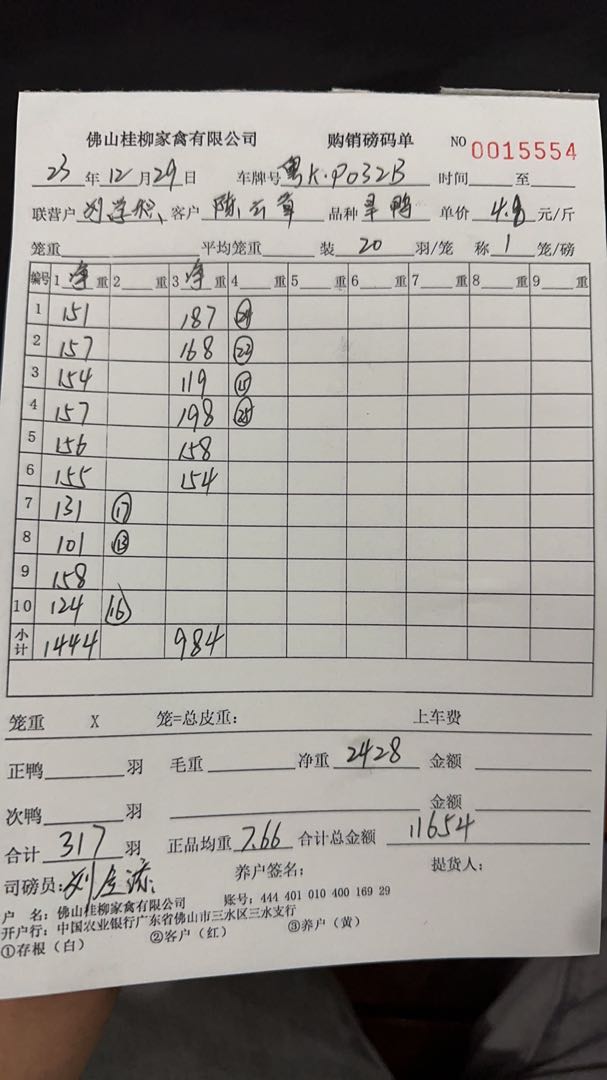 佛山桂柳家禽有限公司 购销磅码单 NO 0015554
23年12月29日 车牌号粤K·P032B 时间 至
联营户 客户 陈云章 品种 旱鸭 单价 4.8 元/斤
笼重 平均笼重 装 20 羽/笼 称 1 笼/磅
编号 1 净 重 2 重 3 净 重 4 重 5 重 6 重 7 重 8 重 9 重
1 151 187
2 157 168
3 154 119 15
4 157 198 25
5 156 158
6 155 154
7 131 17
8 101 13
9 158
10 124 16
小计 1444 984
笼重 X 笼=总皮重: 上车费
正鸭 羽 毛重 净重 2428 金额
次鸭 羽 金额
合计 317 羽 正品均重 7.66 合计总金额 11654
司磅员: 刘 养户签名: 提货人:
户 名: 佛山桂柳家禽有限公司 账号: 444 401 010 400 169 29
开户行: 中国农业银行广东省佛山市三水区三水支行
①存根(白) ②客户(红) ③养户(黄)